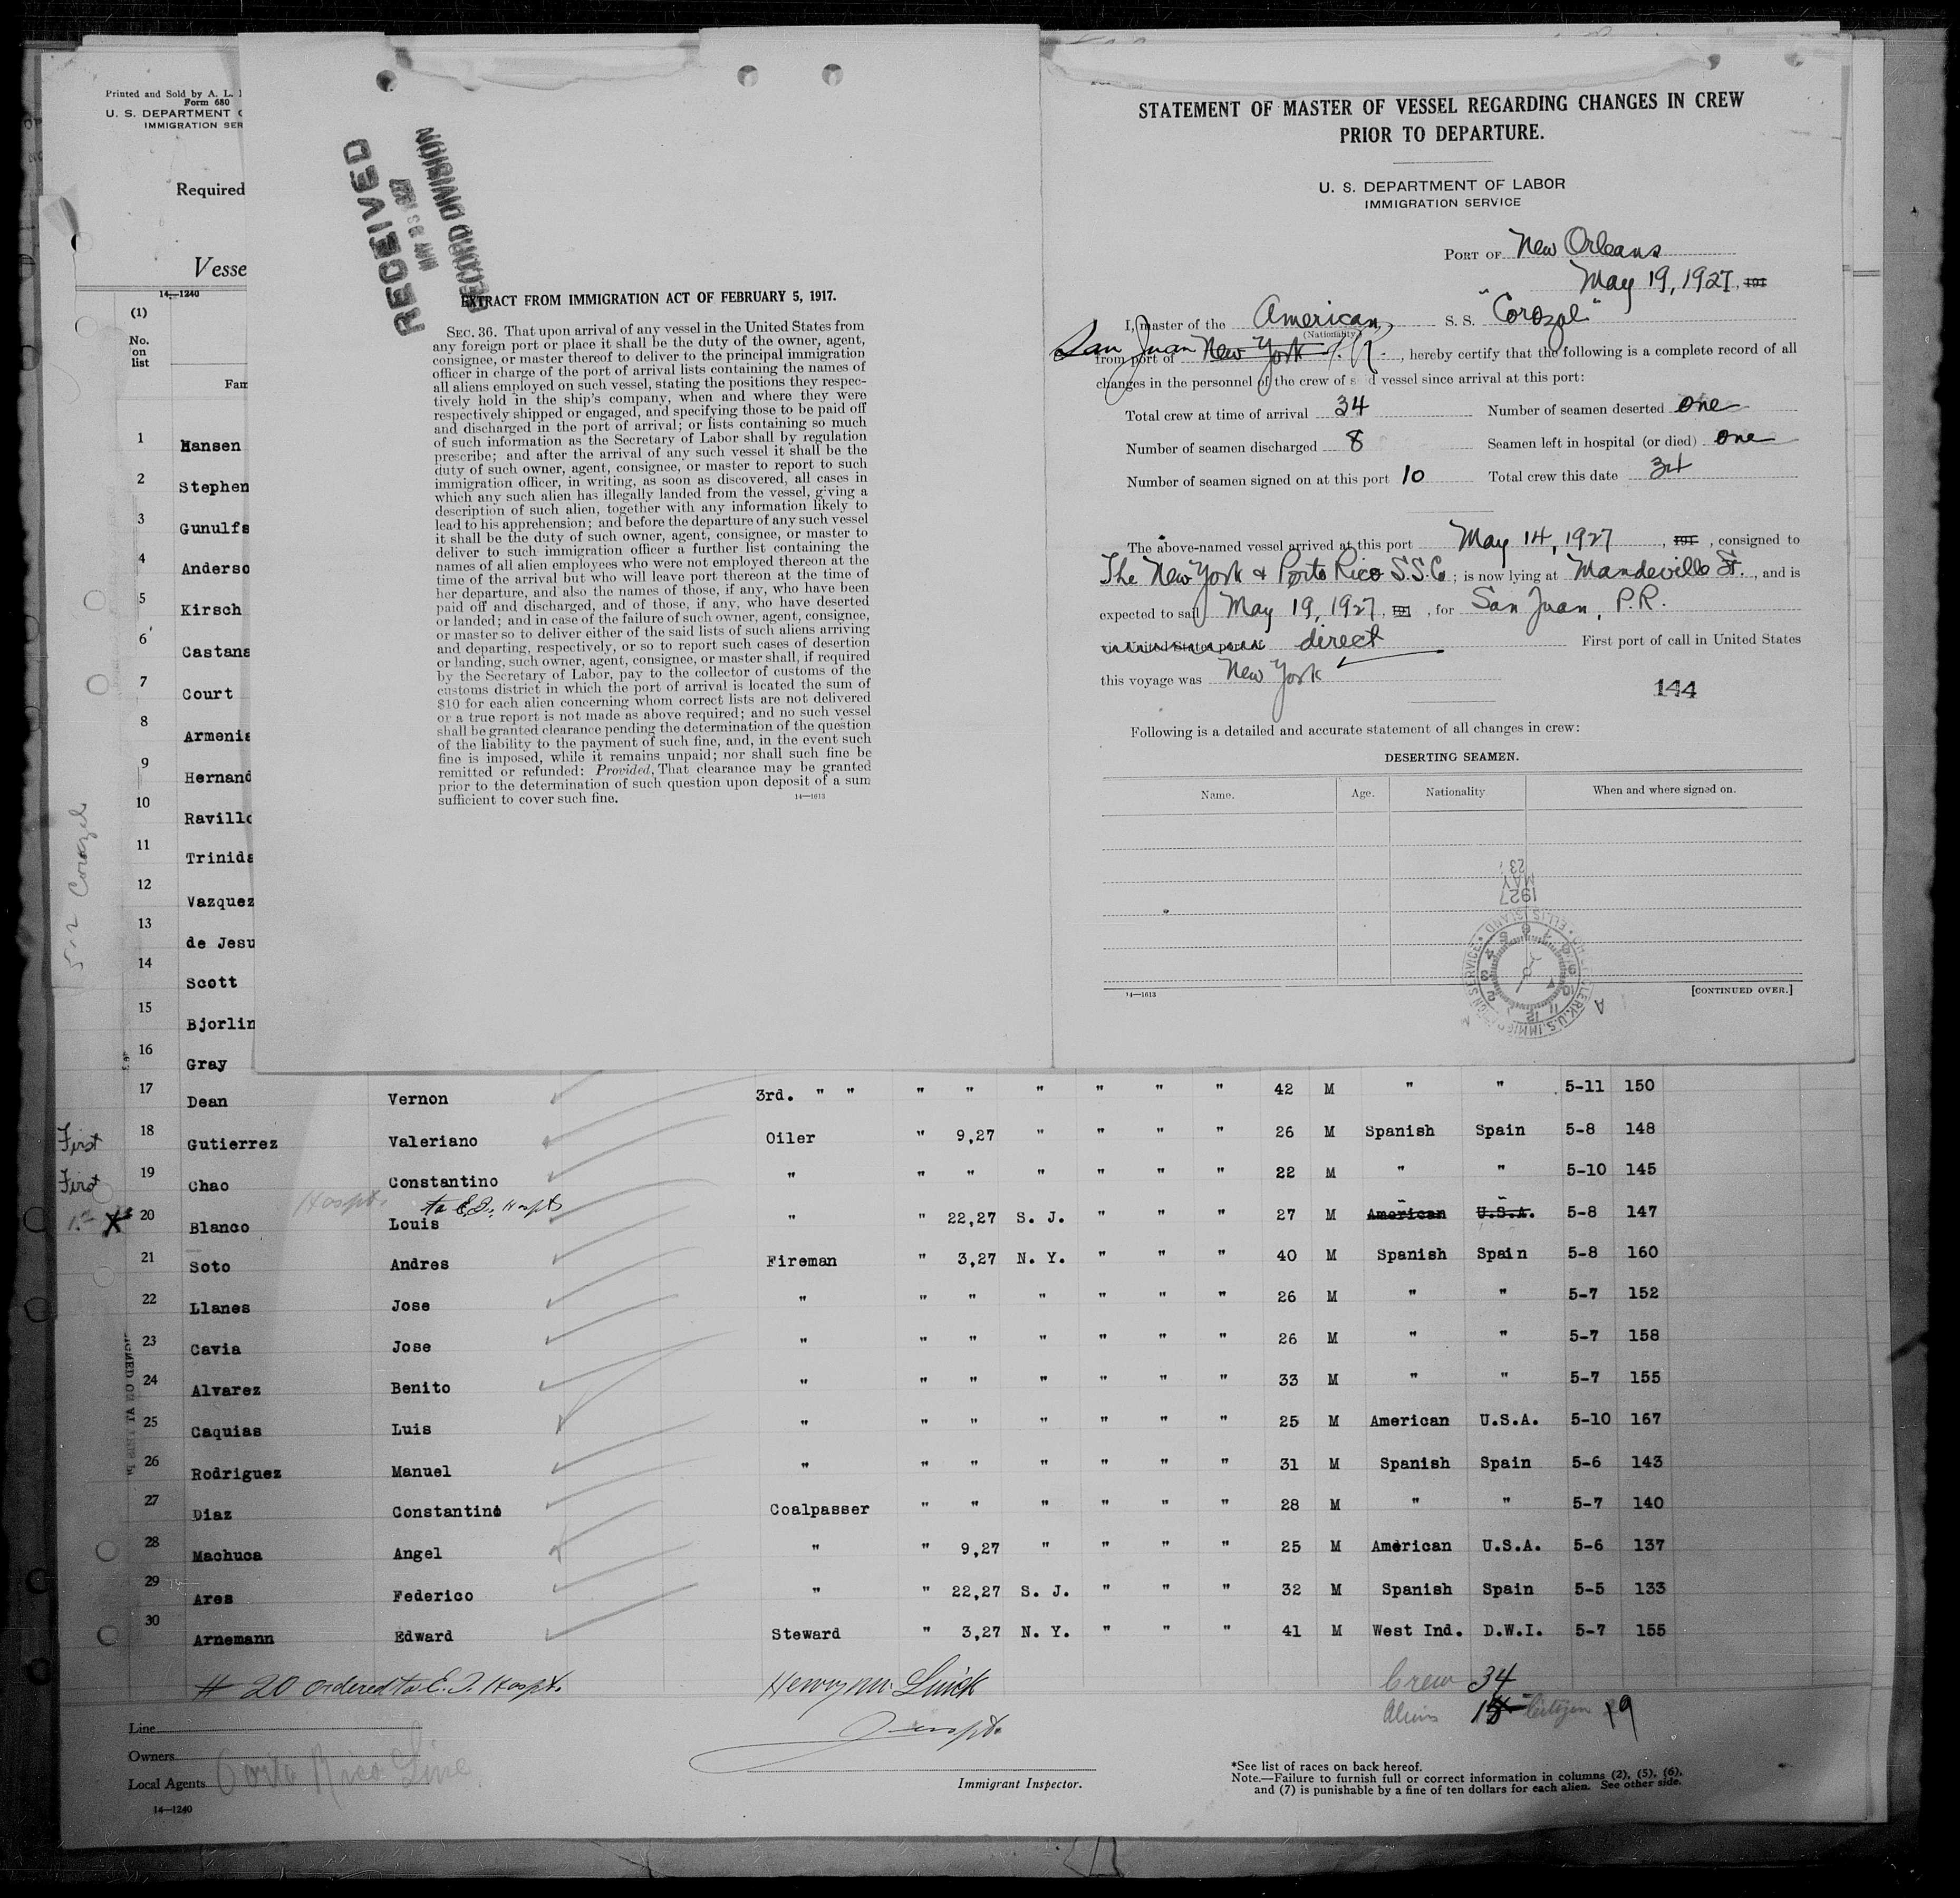 Printed and Sold by A. L.
Form 680
U. S. DEPARTMENT
IMMIGRATION SER
Required
Vesse
14—1240
(1)
No.
on
list
Fam
1 Hansen
2 Stephen
3 Gunulfs
4 Anderso
5 Kirsch
6 Castana
7 Court
8 Armenia
9 Hernand
10 Ravillo
11 Trinida
12 Vazquez
13 de Jesu
14 Scott
15 Bjorlin
16 Gray
S-2 Corozal
RECEIVED
RECORD DIVISION
EXTRACT FROM IMMIGRATION ACT OF FEBRUARY 5, 1917.
SEC. 36. That upon arrival of any vessel in the United States from
any foreign port or place it shall be the duty of the owner, agent,
consignee, or master thereof to deliver to the principal immigration
officer in charge of the port of arrival lists containing the names of
all aliens employed on such vessel, stating the positions they respec-
tively hold in the ship's company, when and where they were
respectively shipped or engaged, and specifying those to be paid off
and discharged in the port of arrival; or lists containing so much
of such information as the Secretary of Labor shall by regulation
prescribe; and after the arrival of any such vessel it shall be the
duty of such owner, agent, consignee, or master to report to such
immigration officer, in writing, as soon as discovered, all cases in
which any such alien has illegally landed from the vessel, giving a
description of such alien, together with any information likely to
lead to his apprehension; and before the departure of any such vessel
it shall be the duty of such owner, agent, consignee, or master to
deliver to such immigration officer a further list containing the
names of all alien employees who were not employed thereon at the
time of the arrival but who will leave port thereon at the time of
her departure, and also the names of those, if any, who have been
paid off and discharged, and of those, if any, who have deserted
or landed; and in case of the failure of such owner, agent, consignee,
or master so to deliver either of the said lists of such aliens arriving
and departing, respectively, or so to report such cases of desertion
or landing, such owner, agent, consignee, or master shall, if required
by the Secretary of Labor, pay to the collector of customs of the
customs district in which the port of arrival is located the sum of
$10 for each alien concerning whom correct lists are not delivered
or a true report is not made as above required; and no such vessel
shall be granted clearance pending the determination of the question
of the liability to the payment of such fine, and, in the event such
fine is imposed, while it remains unpaid; nor shall such fine be
remitted or refunded: Provided, That clearance may be granted
prior to the determination of such question upon deposit of a sum
sufficient to cover such fine.
14—1613
STATEMENT OF MASTER OF VESSEL REGARDING CHANGES IN CREW
PRIOR TO DEPARTURE.
U. S. DEPARTMENT OF LABOR
IMMIGRATION SERVICE
PORT OF New Orleans
May 19, 1927, 191
I, master of the American S. S. "Corozal"
(Nationality)
San Juan P.R.
from port of New York, hereby certify that the following is a complete record of all
changes in the personnel of the crew of s d vessel since arrival at this port:
Total crew at time of arrival 34 Number of seamen deserted one
Number of seamen discharged 8 Seamen left in hospital (or died) one
Number of seamen signed on at this port 10 Total crew this date 34
The above-named vessel arrived at this port May 14, 1927, 191 , consigned to
The New York & Porto Rico S.S.Co; is now lying at Mandeville St., and is
expected to sail May 19, 1927, 191 , for San Juan, P.R.
via United States ports of direct First port of call in United States
this voyage was New York
144
Following is a detailed and accurate statement of all changes in crew:
DESERTING SEAMEN.
Name. Age. Nationality When and where signed on.
1927
MAY
23
ELLIS ISLAND
14—1613 [CONTINUED OVER.]
17 Dean Vernon 3rd. " " " " " " " " 42 M " " 5-11 150
First 18 Gutierrez Valeriano Oiler " 9,27 " " " " 26 M Spanish Spain 5-8 148
First 19 Chao Constantino " " " " " " " 22 M " " 5-10 145
Hospt. to E.I. Hospt
20 Blanco Louis " " 22,27 S. J. " " " 27 M American U.S.A. 5-8 147
21 Soto Andres Fireman " 3,27 N. Y. " " " 40 M Spanish Spain 5-8 160
22 Llanes Jose " " " " " " " 26 M " " 5-7 152
23 Cavia Jose " " " " " " " 26 M " " 5-7 158
24 Alvarez Benito " " " " " " " 33 M " " 5-7 155
25 Caquias Luis " " " " " " " 25 M American U.S.A. 5-10 167
26 Rodriguez Manuel " " " " " " " 31 M Spanish Spain 5-6 143
27 Diaz Constantino Coalpasser " " " " " " 28 M " " 5-7 140
28 Machuca Angel " " 9,27 " " " " 25 M American U.S.A. 5-6 137
29 Ares Federico " " 22,27 S. J. " " " 32 M Spanish Spain 5-5 133
30 Arnemann Edward Steward " 3,27 N. Y. " " " 41 M West Ind. D.W.I. 5-7 155
# 20 ordered to E.I. Hospt. Crew 34
Aliens 15 Citizen 19
Line
Owners
Local Agents Porto Rico Line
Immigrant Inspector.
14—1240
*See list of races on back hereof.
Note.—Failure to furnish full or correct information in columns (2), (5), (6),
and (7) is punishable by a fine of ten dollars for each alien. See other side.